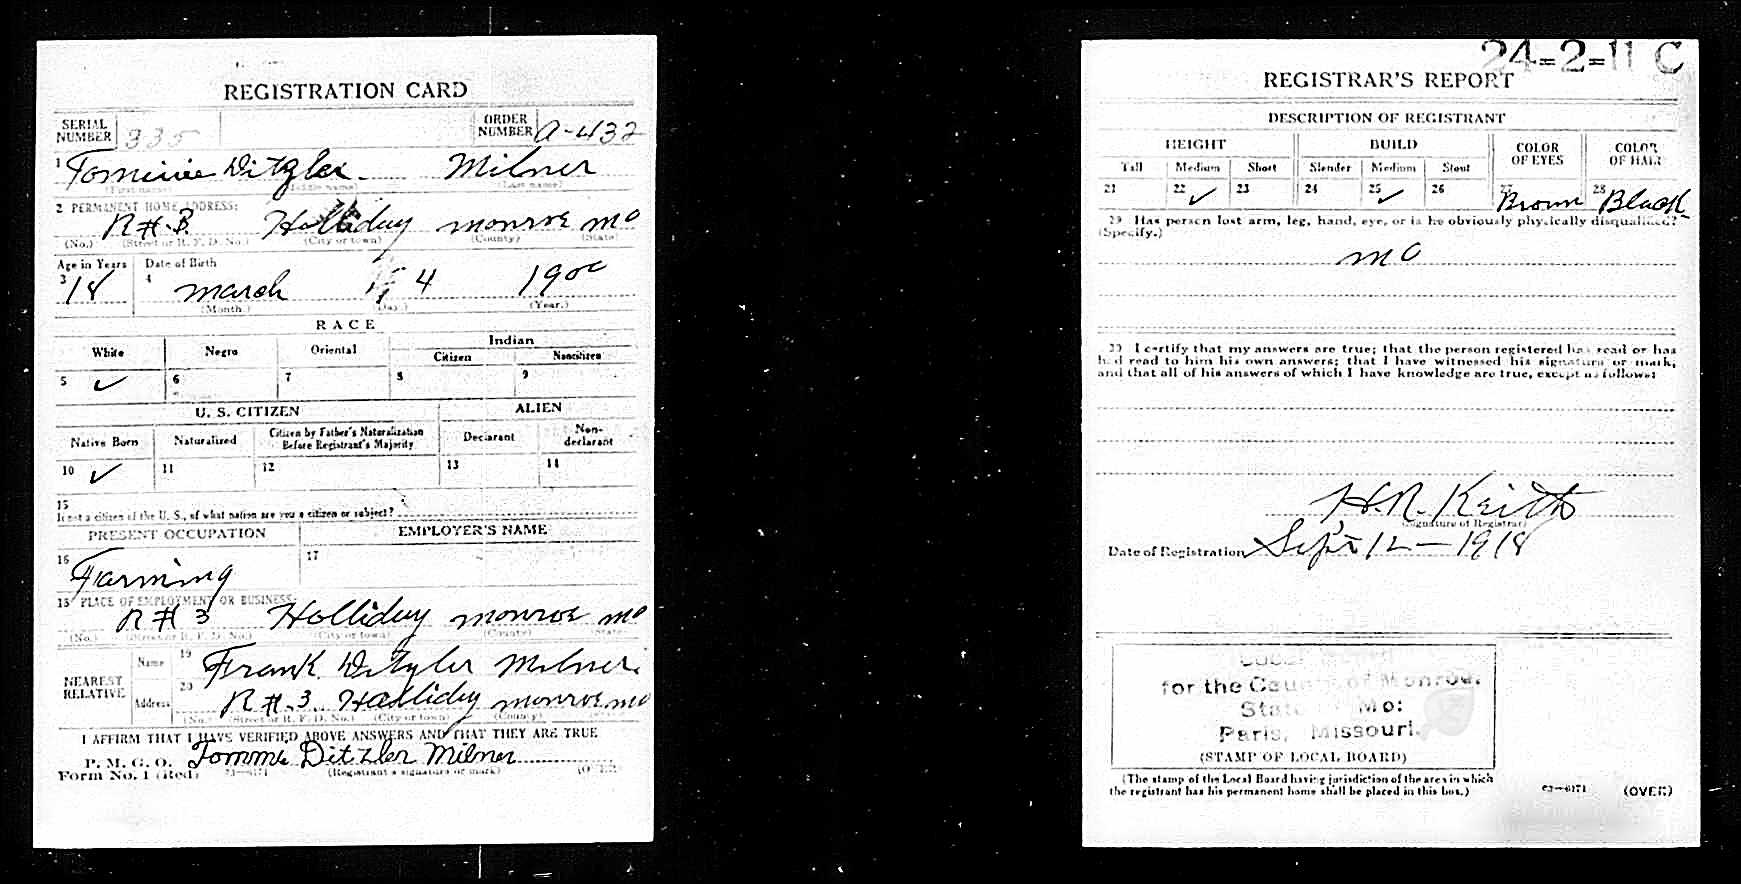 REGISTRATION CARD
SERIAL NUMBER 335 ORDER NUMBER A-432
1 Tommie Ditzler Milner
(First name) (Middle name) (Last name)
2 PERMANENT HOME ADDRESS:
R#3 Holliday monroe mo
(No.) (Street or R. F. D. No.) (City or town) (County) (State)
Age in Years Date of Birth
3 18 4 march 4 1900
(Month.) (Day.) (Year.)
RACE
White Negro Oriental Indian
Citizen Noncitizen
5 ✓ 6 7 8 9
U. S. CITIZEN ALIEN
Native Born Naturalized Citizen by Father's Naturalization Before Registrant's Majority Declarant Non-declarant
10 ✓ 11 12 13 14
15
If not a citizen of the U. S., of what nation are you a citizen or subject?
PRESENT OCCUPATION EMPLOYER'S NAME
16 Farming 17
18 PLACE OF EMPLOYMENT OR BUSINESS:
R#3 Holliday monroe mo
(No.) (Street or R. F. D. No.) (City or town) (County) (State)
NEAREST RELATIVE Name 19 Frank Ditzler Milner
Address 20 R#.3. Holliday monroe mo
(No.) (Street or R. F. D. No.) (City or town) (County)
I AFFIRM THAT I HAVE VERIFIED ABOVE ANSWERS AND THAT THEY ARE TRUE
P. M. G. O.
Form No. 1 (Red) Tommie Ditzler Milner
(Registrant's signature or mark) (OVER)
24-2-11 C
REGISTRAR'S REPORT
DESCRIPTION OF REGISTRANT
HEIGHT BUILD COLOR OF EYES COLOR OF HAIR
Tall Medium Short Slender Medium Stout
21 22 ✓ 23 24 25 ✓ 26 27 Brown 28 Black
29 Has person lost arm, leg, hand, eye, or is he obviously physically disqualified?
(Specify.)
no
30 I certify that my answers are true; that the person registered has read or has
had read to him his own answers; that I have witnessed his signature or mark,
and that all of his answers of which I have knowledge are true, except as follows:
H.R. Keith
(Signature of Registrar)
Date of Registration Sept 12-1918
Local Board
for the County of Monroe.
State Mo:
Paris, Missouri.
(STAMP OF LOCAL BOARD)
(The stamp of the Local Board having jurisdiction of the area in which
the registrant has his permanent home shall be placed in this box.)
63—6171 (OVER)